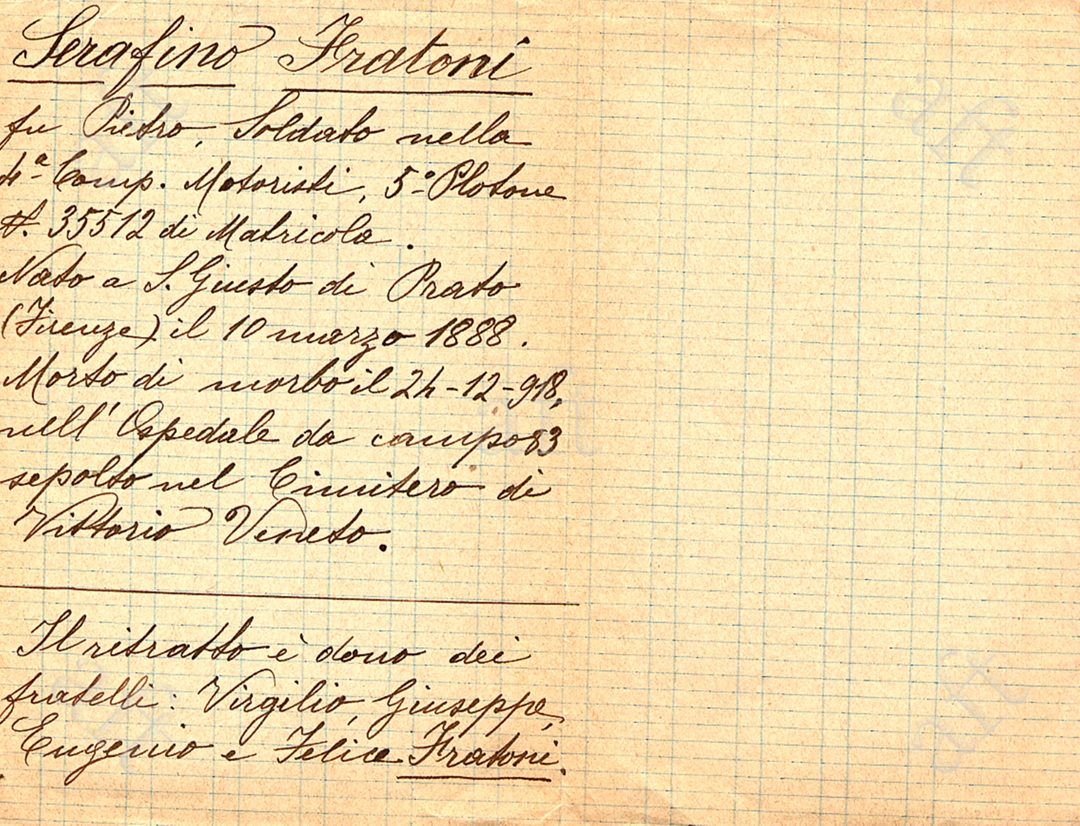 Serafino Fratoni
fu Pietro, Soldato nella
4ª Comp. Motoristi, 5º Plotone
N. 35512 di Matricola.
Nato a S. Giusto di Prato
(Firenze) il 10 marzo 1888.
Morto di morbo il 24-12-918,
nell'Ospedale da campo 83
sepolto nel Cimitero di
Vittorio Veneto.
Il ritratto è dono dei
fratelli: Virgilio, Giuseppe,
Eugenio e Felice Fratoni.